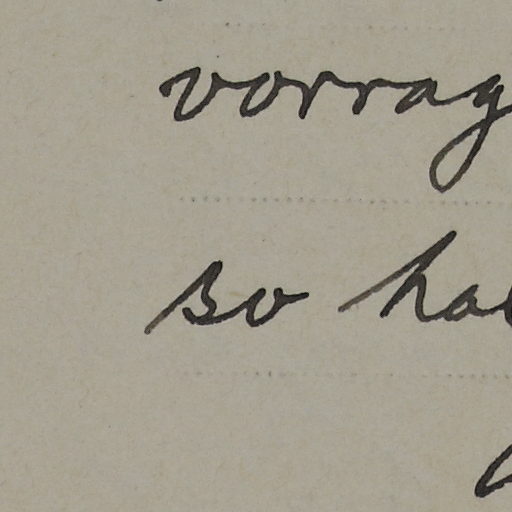 vorrag
so ha